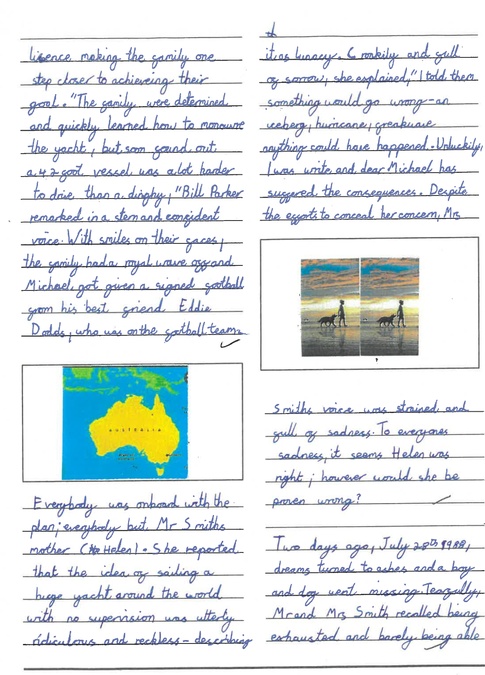 lisence making the family one
step closer to achieveing their
goal. "The family were determined
and quickly learned how to manouvre
the yacht, but soon found out
a 42 foot vessel was alot harder
to drive than a dinghy," Bill Parker
remarked in a stern and confident
voice. With smiles on their faces,
the family had a royal wave off and
Michael got given a signed football
from his best friend Eddie
Dodds, who was on the football team.
AUSTRALIA
Everybody was onboard with the
plan; everybody but Mr Smiths
mother (Helen). She reported
that the idea of sailing a
huge yacht around the world
with no supervision was utterly
ridiculous and reckless - describing
it as lunacy. Croakily and full
of sorrow, she explained, "I told them
something would go wrong - an
iceberg, huricane, freakwave
anything could have happened. Unluckily,
I was write and dear Michael has
suffered the consequences. Despite
the efforts to conceal her concern, Mrs
Smiths voice was strained and
full of sadness. To everyones
sadness, it seems Helen was
right; however would she be
proven wrong?
Two days ago, July 28th 1988,
dreams turned to ashes and a boy
and dog went missing. Tearfully,
Mr and Mrs Smith recalled being
exhausted and barely being able